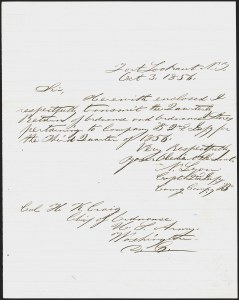 Fort Lookout, N.T.
Oct 3. 1856.
Sir,
Herewith enclosed I
respectfully transmit the Quarterly
Return of Ordnance and Ordnance Stores
pertaining to Company B 2d Infy for
the Third Quarter of 1856.
Very Respectfully
Your Obdt Svt
N. Lyon
Capt 2d Infy
Comg Compy B
Col. H. K. Craig
Chief of Ordnance
U.S. Army.
Washington